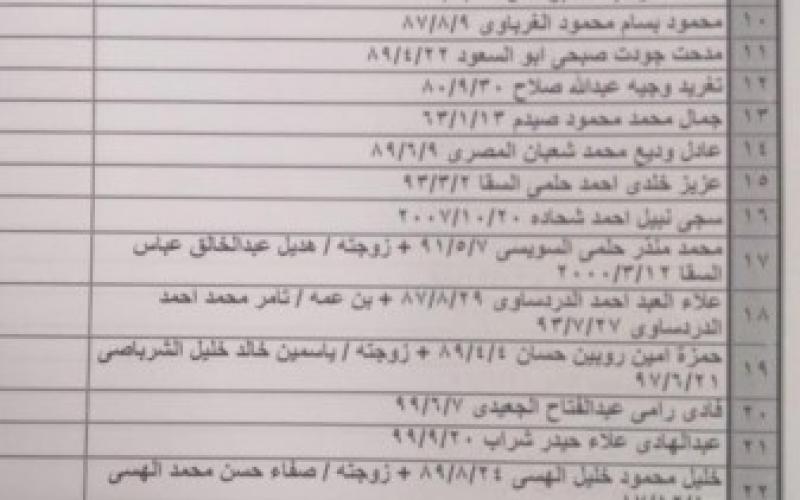 ١٠ محمود بسام محمود القرياوى ٨٧/٨/٩
١١ مدحت جودت صبحى ابو السعود ٨٩/٤/٢٢
١٢ تغريد وجيه عبدالله صلاح ٨٠/٩/٣٠
١٣ جمال محمد محمود صيدم ٦٣/١/١٣
١٤ عادل وديع محمد شعبان المصرى ٨٩/٦/٩
١٥ عزيز خلدى احمد حلمى السقا ٩٣/٣/٢
١٦ سجى نبيل احمد شحاده ٢٠٠٧/١٠/٢٠
١٧ محمد منذر حلمى السويسى ٩١/٥/٧ + زوجته / هديل عبدالخالق عباس
السقا ٢٠٠٠/٣/١٢
١٨ علاء العبد احمد الدردساوى ٨٧/٨/٢٩ + بن عمه / تامر محمد احمد
الدردساوى ٩٣/٧/٢٧
١٩ حمزة امين روبين حسان ٨٩/٤/٤ + زوجته / ياسمين خالد خليل الشرباصى
٩٧/٦/٢١
٢٠ فادى رامى عبدالفتاح الجعيدى ٩٩/٦/٧
٢١ عبدالهادى علاء حيدر شراب ٩٩/٩/٢٠
٢٢ خليل محمود خليل الهسى ٨٩/٨/٢٤ + زوجته / صفاء حسن محمد الهسى